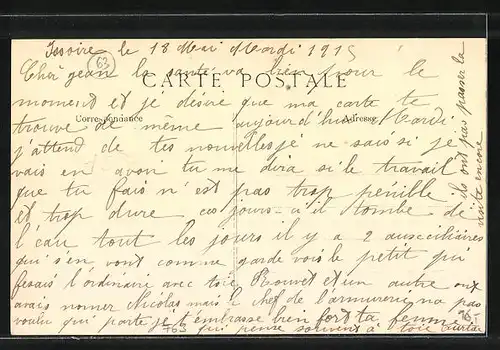 Issoire le 18 Mai Mardi 1915
63
Cher jean la santé va bien pour le
CARTE POSTALE
moment et je désire que ma carte te
Correspondance
Adresse
trouve de même aujourd'hui Mardi
j'attend de tes nouvelles je ne sais si je
vais en avoir tu me dira si le travail
que tu fais n'est pas trop penible
et trop dure ces jours-ci il tombe de
l'eau tout les jours il y a 2 auxciliaires
qui s'en vont comme garde vois le petit qui
fesais l'ordinaire avec toie Rouvet et un autre ont
avais nomer Nicolas mais le chef de l'armurerie na pas
voulu qui parte je t'embrasse bien fort ta femme
763 qui pense souvent a toie
ils ont pas passer la
visite encore
96